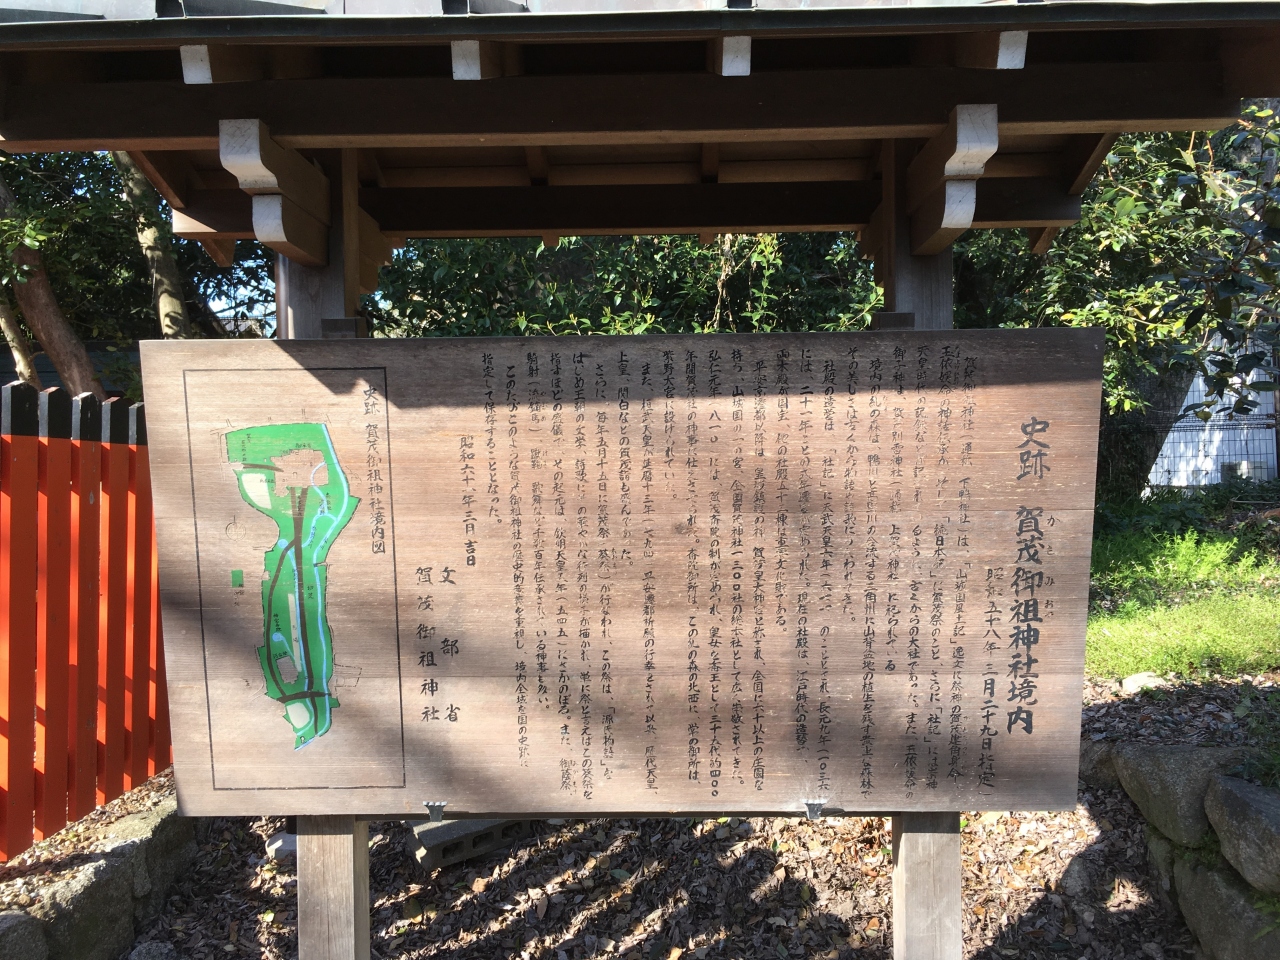 史跡 賀茂御祖神社境内
か も み おや
昭和五十八年三月二十九日指定
賀茂御祖神社(通称 下鴨神社)は、「山城国風土記」逸文に祭神の賀茂建角身命、
玉依媛命の神話伝承が
天皇の 「続日本紀」に賀茂祭のこと、さらに「社記」には
賀茂別雷神社(通称 上賀茂神社)に祀られている 古くからの大社であった。また、玉依媛命の
境内の糺の森は、鴨川と高野川の合流する三角州に山背盆地の植生を残す 森林で
その美しさは古くから物語や詩歌にうたわれてきた。
社殿の造営は、「社記」に天武天皇六年(六七七)のこととされ、長元九年(一〇三六)
には、二十一年ごとの式年遷宮が定められた。現在の社殿は、江戸時代の造替で、
両本殿が国宝、他の社殿五十三棟が重要文化財である。
平安京遷都以降は、皇城鎮護の神、賀茂皇大神宮と称され、全国に六十以上の荘園を
持ち、山城国一の宮、全国賀茂神社一三〇〇社の総本社として広く崇敬されてきた。
弘仁元年(八一〇)には、賀茂斎院の制が定められ、皇女を斎王として三十五代約四〇〇
年間賀茂社の神事に仕えさせられた。斎院御所は、この糺の森の北西に、常の御所は
紫野大宮に設けられていた。
また、桓武天皇が延暦十三年(七九四)平安遷都祈願の行幸をされて以来、歴代天皇、
上皇、関白などの賀茂詣も盛んであった。
さらに、毎年五月十五日に賀茂祭(葵祭)が行なわれ、この祭は、「源氏物語」を
はじめ王朝の文学、詩歌にその華やかな行列の様子が描かれ、単に祭と言えばこの葵祭を
指すほどの盛儀で、その起元は、欽明天皇五年(五四五)にさかのぼる。また、御蔭祭、
騎射(流鏑馬)、蹴鞠、歌舞など千数百年伝承されている神事も多い。
このたびこのような賀茂御祖神社の歴史的意義を重視し、境内全域を国の史跡に
指定して保存することとなった。
昭和六十一年三月 吉日
文部省
賀茂御祖神社
史跡 賀茂御祖神社境内図